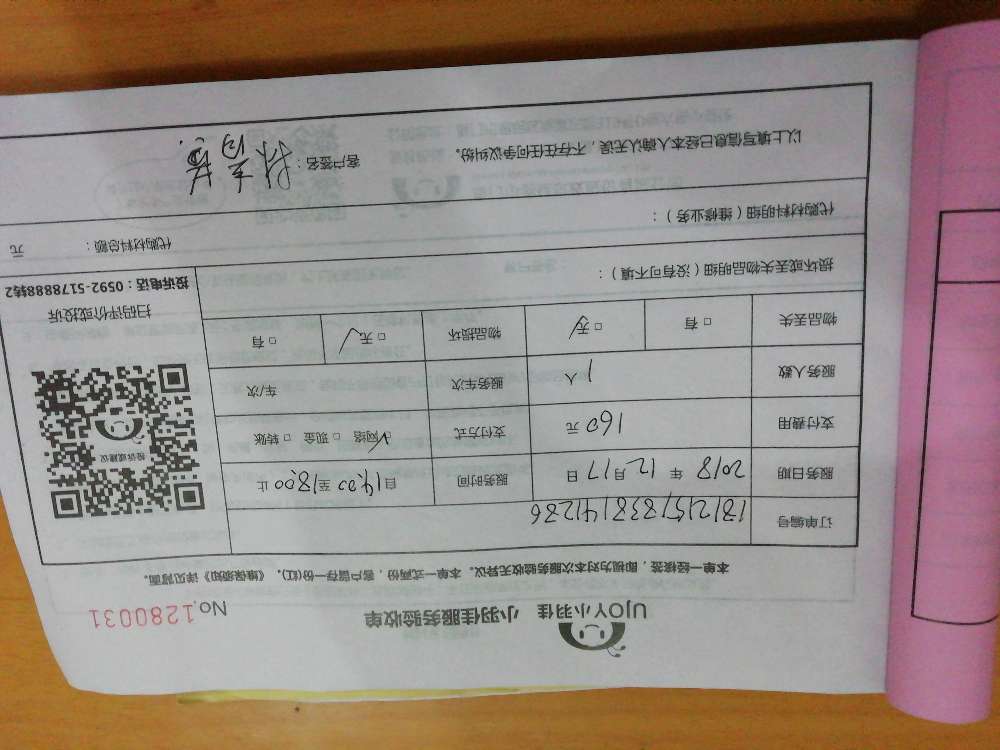 UJOY小羽佳 小羽佳服务验收单 No.1280031
本单一经核签，即视为对本次服务验收无异议。本单一式两份，客户留存一份(红)，《维保须知》详见背面。
订单编号
服务日期 2018 年 12 月 17 日 服务时间 自 14:00 至 18:00 止
支付费用 160 元 支付方式 □ 网络 □ 现金 □ 转账
服务人数 1 人 服务车次 车/次
物品丢失 □ 有 □ 无 物品损坏 □ 无 □ 有
投诉或建议
扫码评价或投诉
投诉电话：0592-5178888转2
损坏或丢失物品明细（没有可不填）：
代购材料明细（维修业务）：
代购材料总额： 元
以上填写信息已经本人确认无误，不存在任何争议纠纷。 客户签名：